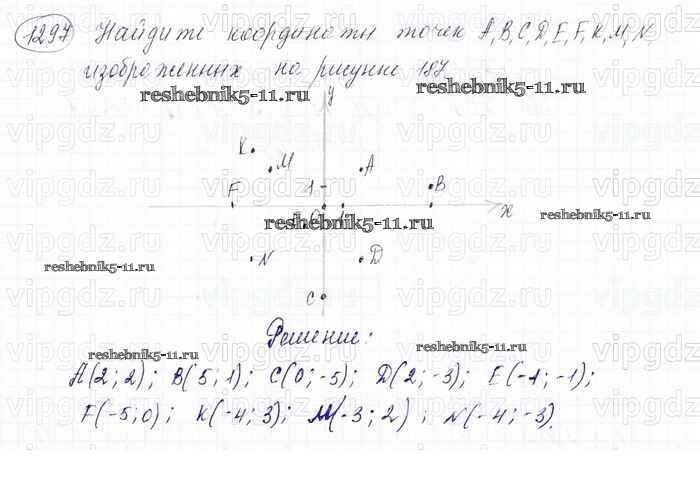 1297 Найдите координаты точек A, B, C, D, E, F, K, M, N,
изображенных на рисунке 187.
reshebnik5-11.ru
reshebnik5-11.ru
y
K
M
A
F
1
B
0
reshebnik5-11.ru
x
reshebnik5-11.ru
N
D
reshebnik5-11.ru
C
Решение:
reshebnik5-11.ru
reshebnik5-11.ru
A(2; 2); B(5; 1); C(0; -5); D(2; -3); E(-1; -1);
F(-5; 0); K(-4; 3); M(-3; 2); N(-4; -3).
vipgdz.ru